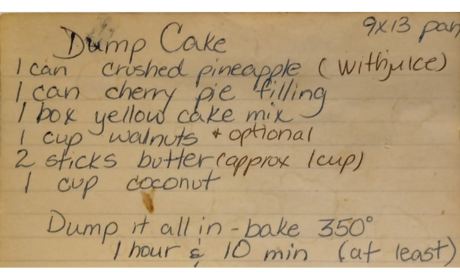 9x13 pan
Dump Cake
1 can crushed pineapple (with juice)
1 can cherry pie filling
1 box yellow cake mix
1 cup walnuts * optional
2 sticks butter (approx 1 cup)
1 cup coconut
Dump it all in - bake 350°
1 hour & 10 min (at least)